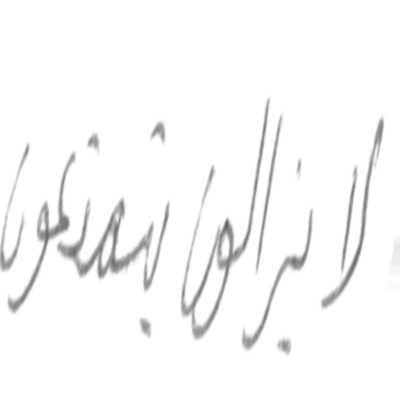 لا يزالون يتمتعون